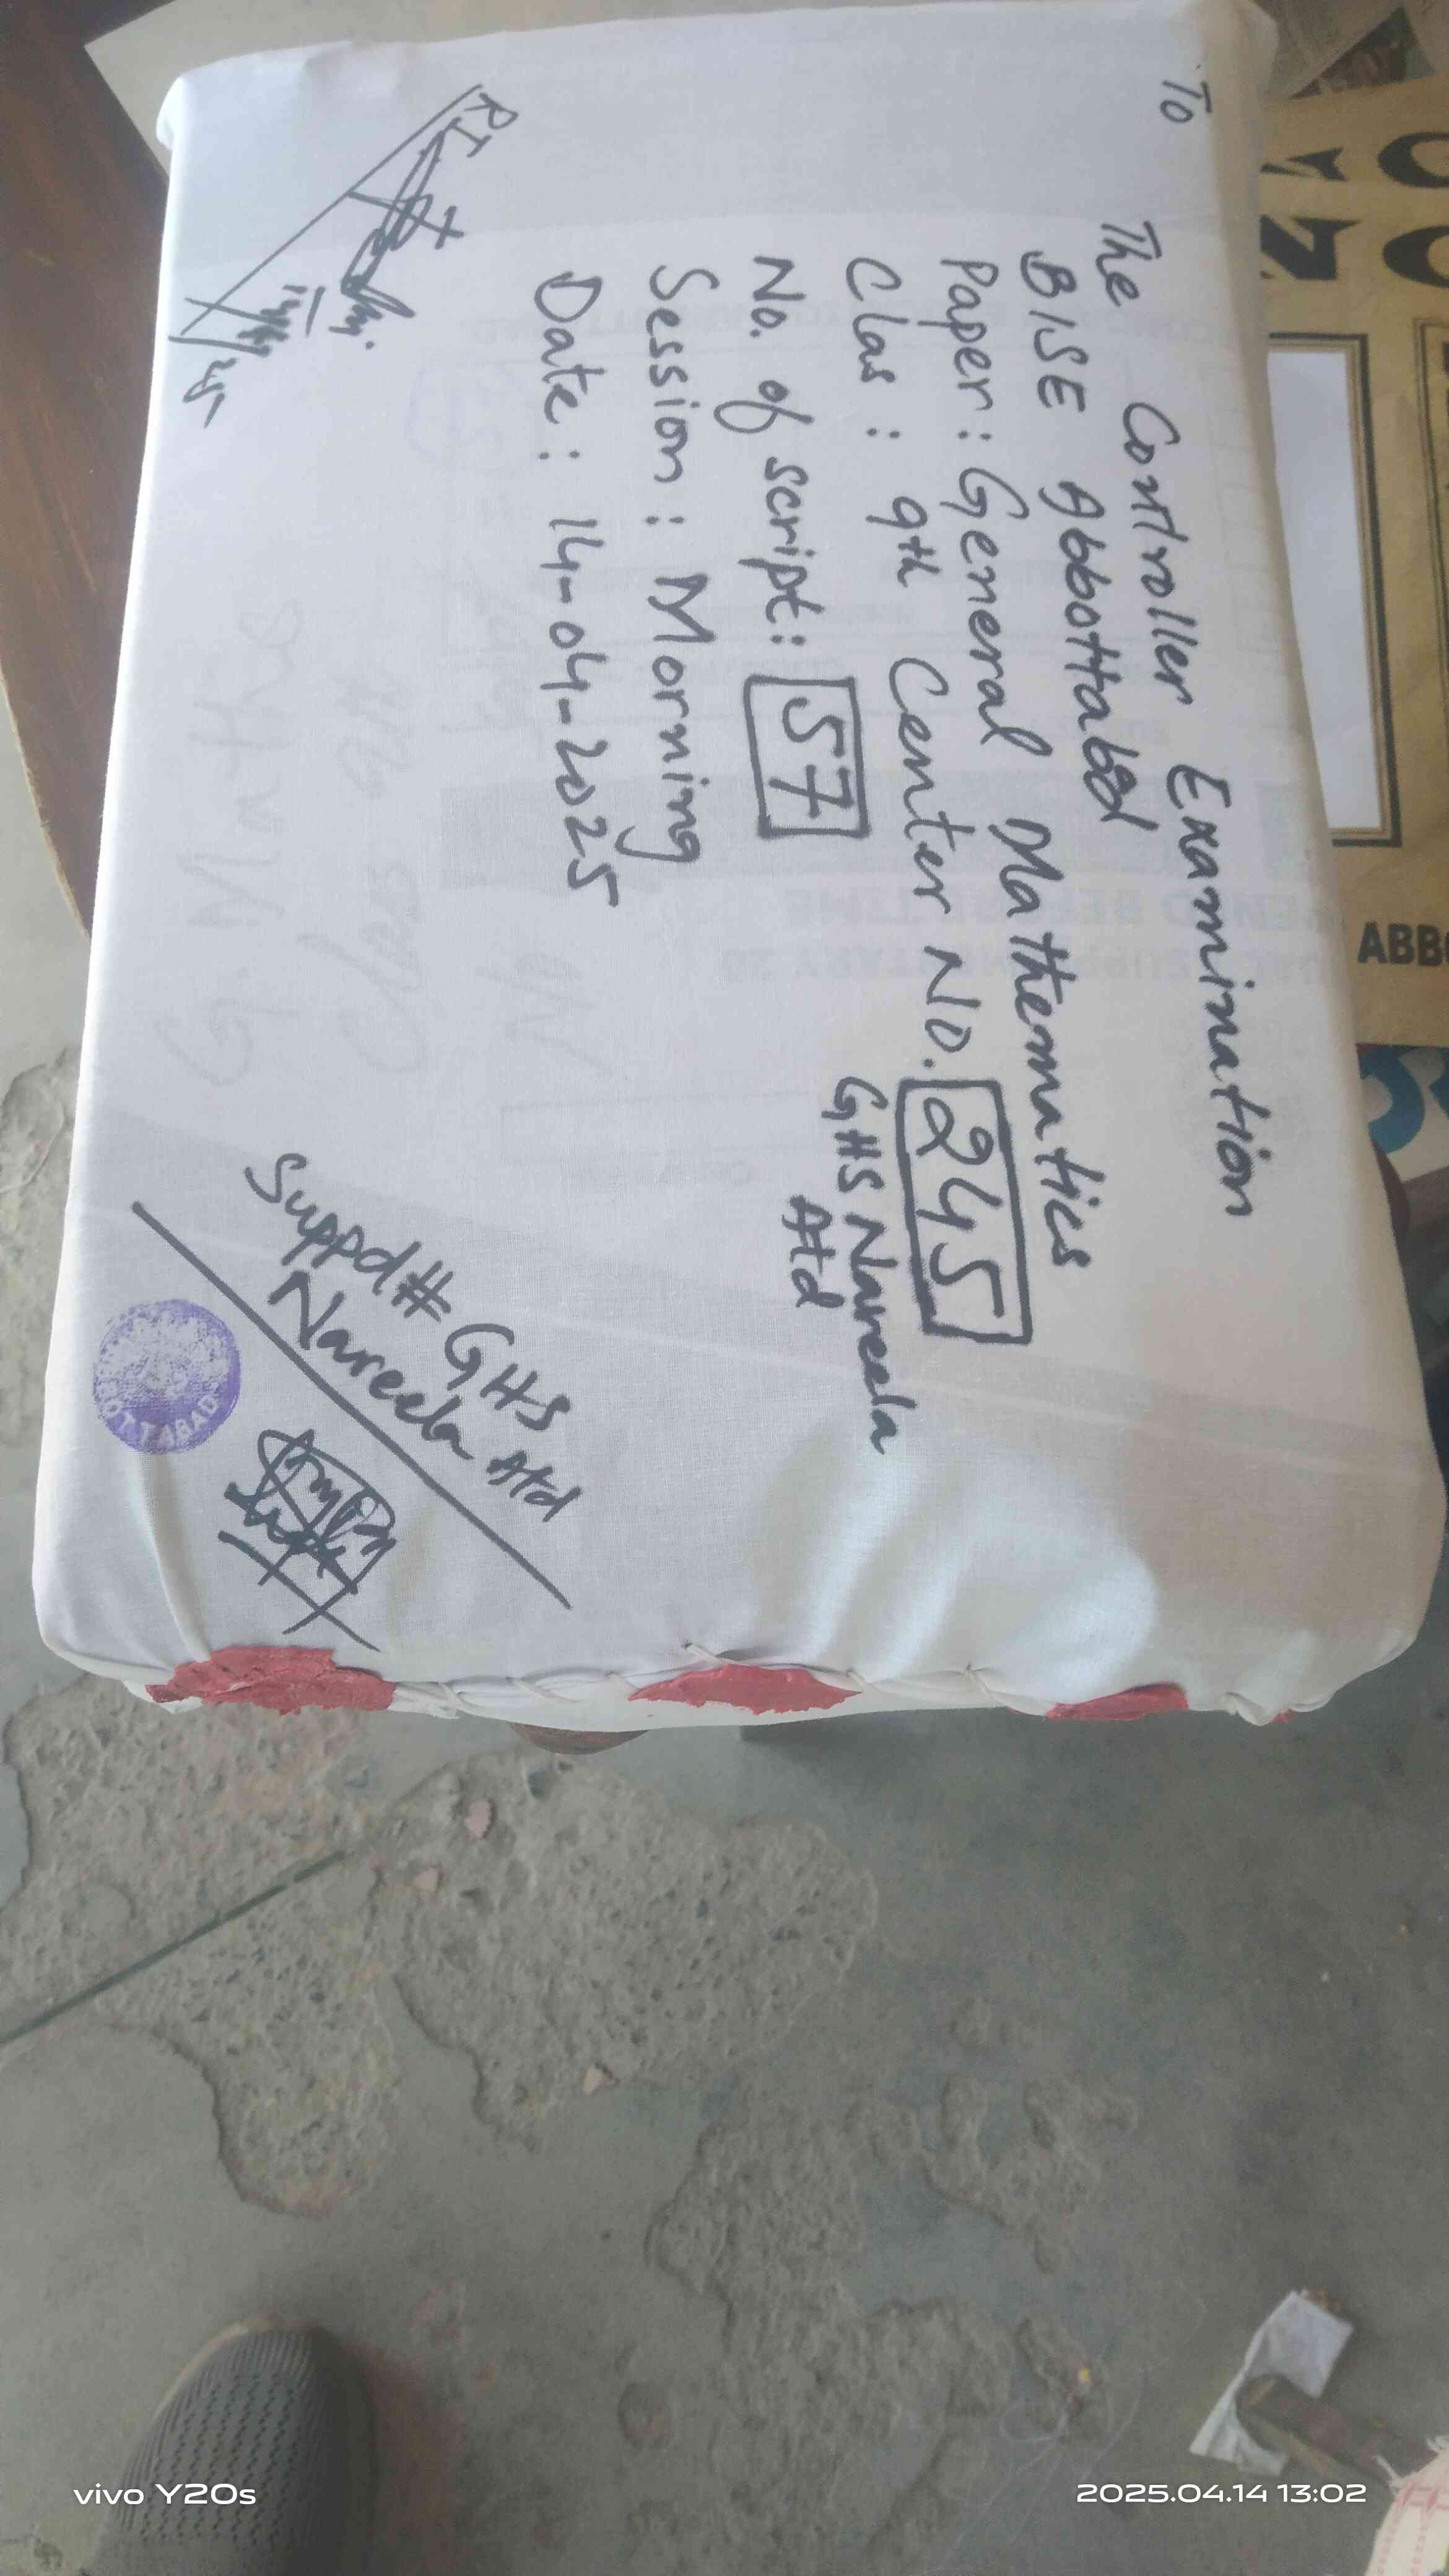 To
The Controller Examination
BISE Abbottabad
Paper: General Mathematics
Clas: 9th Center No. 245
GHS Nareela
Atd
No. of script: 57
Session: Morning
Date: 14-04-2025
RI
Suppd# GHS
Nareela Atd
OTTABAD
G. Maths
Class 9th
ABBO
vivo Y20s
2025.04.14 13:02